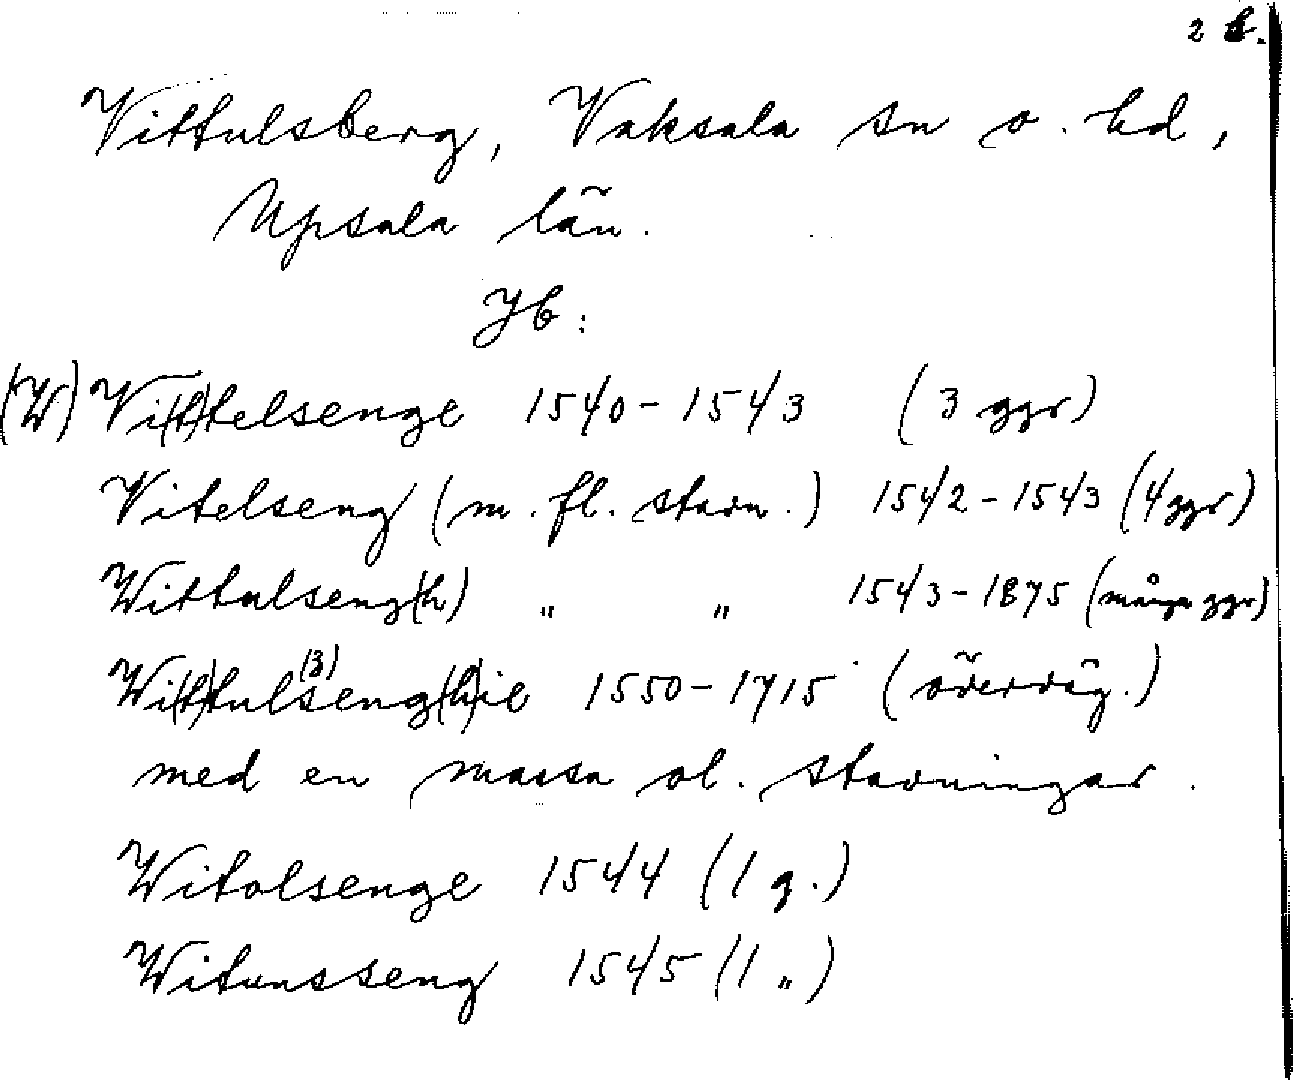 2 b.
Vittulsberg, Vaksala sn o. hd,
Upsala län.
Jb:
(W) Vi(t)telsenge 1540-1543 (3 ggr)
Vitelseng (m. fl. stavn.) 1542-1543 (4 ggr)
Wittulseng(h) „ „ 1543-1875 (många ggr)
Wi(t)tuls(z)eng(h)ie 1550-1715 (överväg.)
med en massa ol. stavningar.
Witolsenge 1544 (1 g.)
Witunsseng 1545 (1 „)